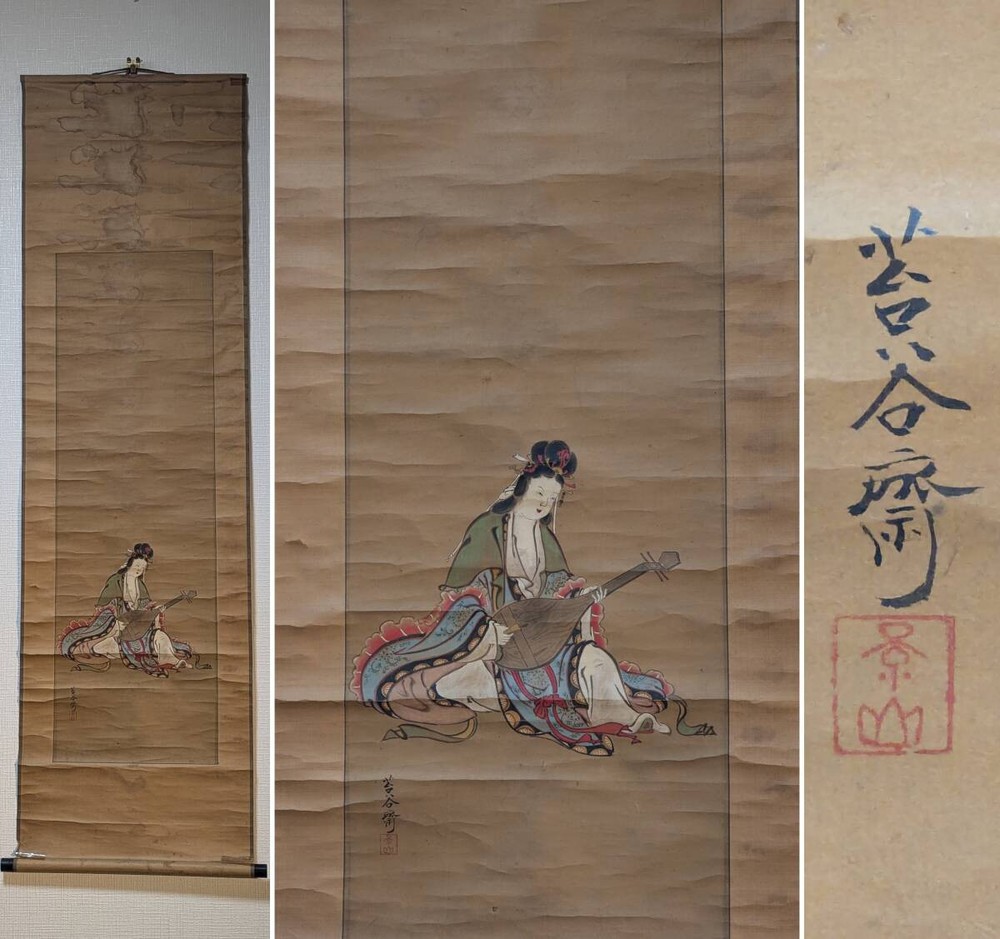 苔谷齋
景山
苔谷齋
景山